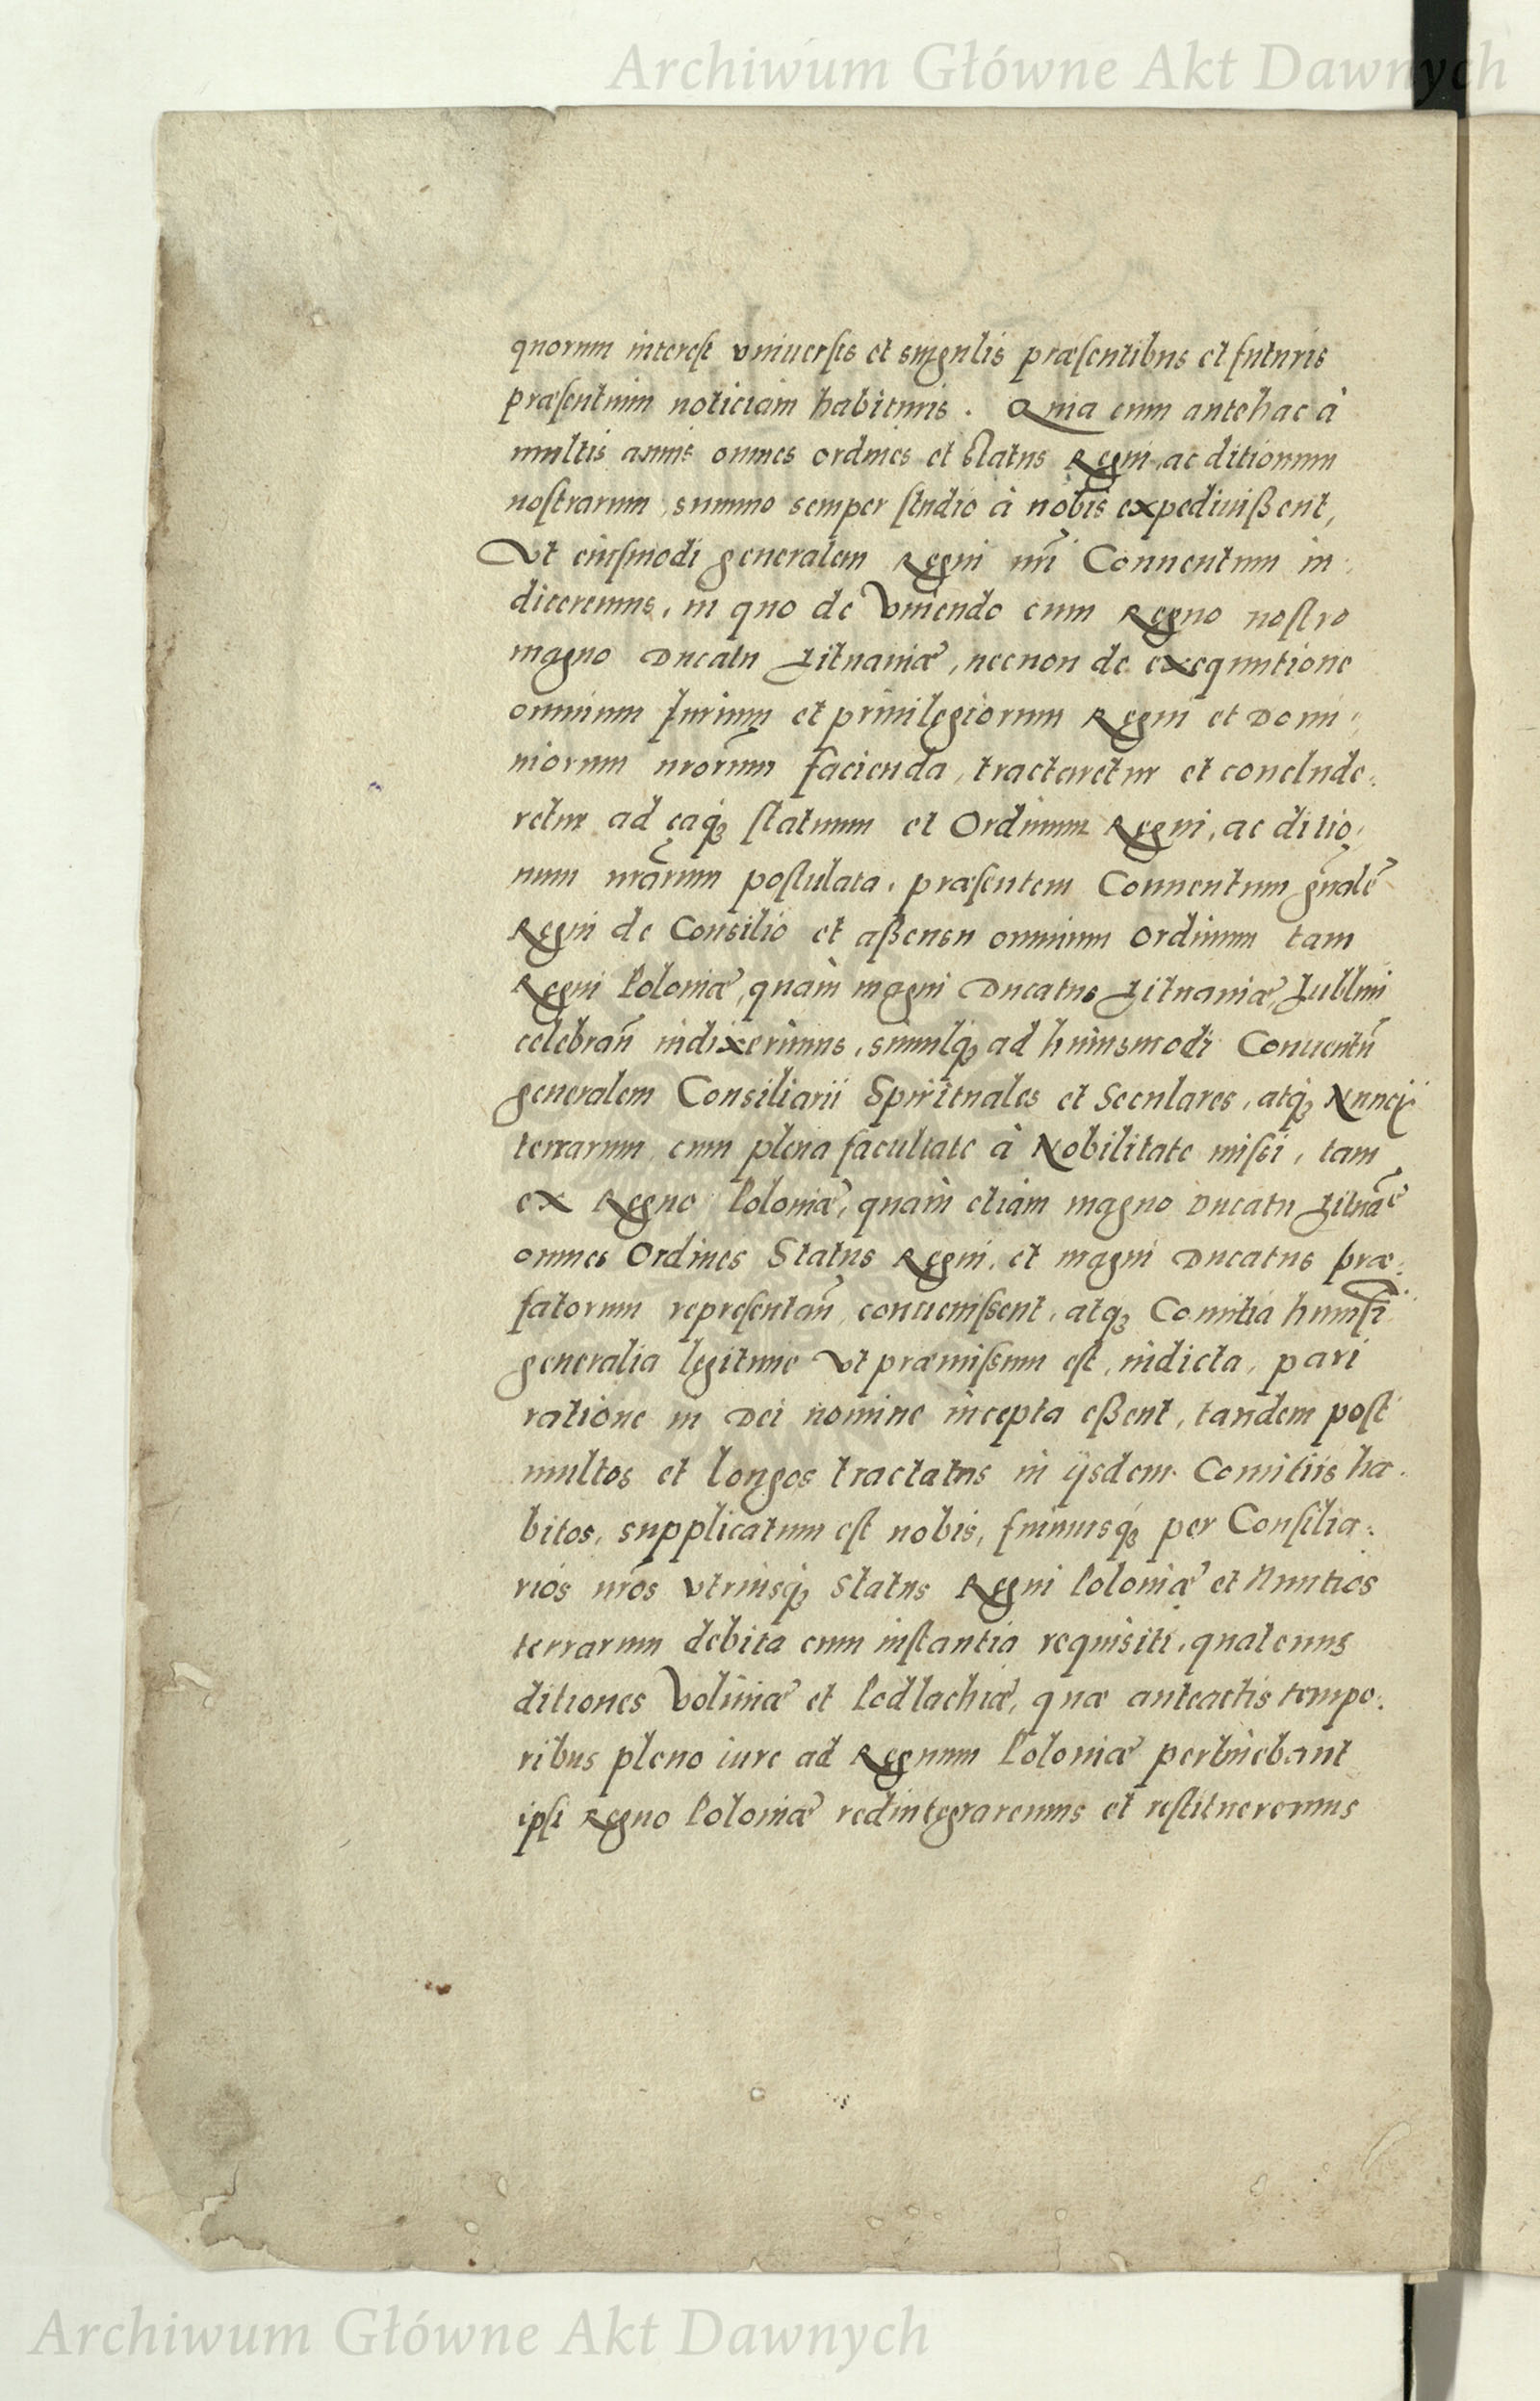 Archiwum Główne Akt Dawnych
quorum interest vniuersis et singulis præsentibus et futuris
præsentium noticiam habituris. Quia cum antehac à
multis annis omnes ordines et Status Regni, ac ditionum
nostrarum, summo semper studio à nobis expediuißent,
Vt eiusmodi generalem Regni nr̃i Conuentum in,
diceremus, in quo de Vniendo cum Regno nostro
magno Ducatu Lituaniæ, necnon de exequutione
omnium Iurium et priuilegiorum Regni et Domi„
niorum nrorũm facienda, tractaretur et conclude:
retur ad eaq̃ statuum et Ordinum Regni, ac ditio,
num nrãrum postulata, præsentem Conuentum gñalẽ
Regni de Consilio et aßensu omnium Ordinum tam
Regni Poloniæ, quàm magni Ducatus Lituaniæ, Lublini
celebrañ indixerimus, simulq̃ ad huiusmodi Conuentũ
generalem Consiliarii Spirituales et Seculares, atq̃ Nuncij
terrarum, cum plena facultate à Nobilitate missi, tam
ex Regno Poloniæ, quàm etiam magno Ducatu Lituãe
omnes Ordines Status Regni, et magni Ducatus præ:
fatorum representañ, conuenissent, atq̃ Comitia huiusĩ
generalia legitime Vt præmissum est, indicta, pari
ratione in Dei nomine incepta eßent, tandem post
multos et longos tractatus in ijsdem Comitiis ha.
bitos, supplicatum est nobis, fuimusq̃ per Consilia:
rios nrõs vtriusq̃ Status Regni Poloniæ et Nuntios
terrarum debita cum instantia requisiti, quatenus
ditiones Voliniæ et Podlachiæ, quæ anteactis tempo:
ribus pleno iure ad Regnum Poloniæ pertinebant
ipsi Regno Poloniæ redintegraremus et restitueremus
Archiwum Główne Akt Dawnych